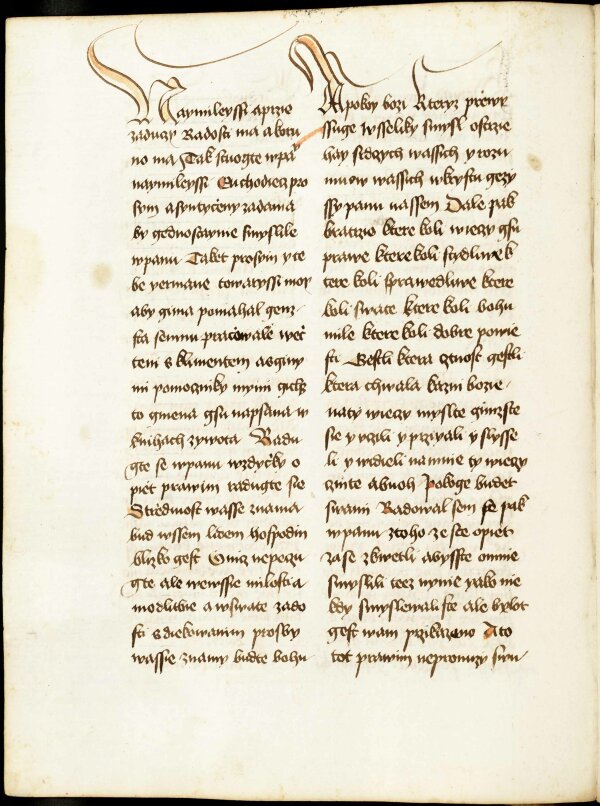 Naymileyssi a przie
zaducy Radosti ma a koru
no ma Tak stuogte w pa
naymileyssi Euchodiez pro
sym a syntyceny zadama
by gednostayne smyslile
w panu Take t prosym y te
be yermane towaryssi moy
aby gima pomahal genz
sta semnu praczowale w eć
teni s klimentem a s giny
mi pomoczniky mymi gichz
to gmena gsu napsana w
knihach zywota Radu
gte se w panu wzdyczky o
piet prawim radugte sie
Strzedmost wasse znama
bud wssem lidem hospodin
blizko gest Onicz nepeczu
gte ale wewssie milosti a
modlitbie a w swate zado
sti s diekowanim prosby
wassie znamy budte bohu
A pokoy bozi kteryz przewy
ssuge wsseliky smysl ostrzie
hay srdczych wassich y rozu
muow wassich w krystu gezy
ssy panu nassem Dale pak
bratrzie ktere koli wieczy gsu
prawe ktere koli stydliwe k
tere koli sprawedliwe ktere
koli swate ktere koli bohu
mile ktere koli dobre powie
sti Gestli ktera cznost gestli
ktera chwala kazni bozie
na ty wieczy myslte gimzste
sie y vczili y przigali y slysse
li y widieli na mnie ty wieczy
czinte a buoh pokoge budet
s wami Radowal sem se pak
w panu z toho ze ste opiet
zase zkwetli abysste o mnie
smyslili teez nynie yako nie
kdy smyslewali ste ale bylot
gest wam przikazano A to
tot prawim ne pro nuzy swu